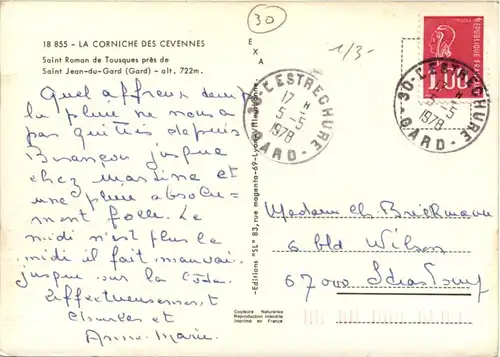 18 855 - LA CORNICHE DES CEVENNES
Saint Roman de Tousques près de
Saint Jean-du-Gard (Gard) - alt. 722m.
Quel affreux temps
la pluie ne nous a
pas quittés depuis
Briançon jusque
chez Martine et
une pluie absolu-
ment folle. Le
midi n'est plus le
midi il fait mauvai.
jusque sur la Côte.
Affectueusement
Charles et
Anne-Marie.
30
1/3-
EXA
-Editions "SL" 83, rue magenta-69-Lyon
Couleurs Naturelles
Reproduction interdite
Imprimé en France
30-L'ESTRECHURE
17 H
5-5
1978
GARD-
REPUBLIQUE FRANCAISE
1,00
30-L'ESTRECHURE
5-5
1978
GARD-
Madame Ch.
6 bld Wilson
67000 Strasbourg